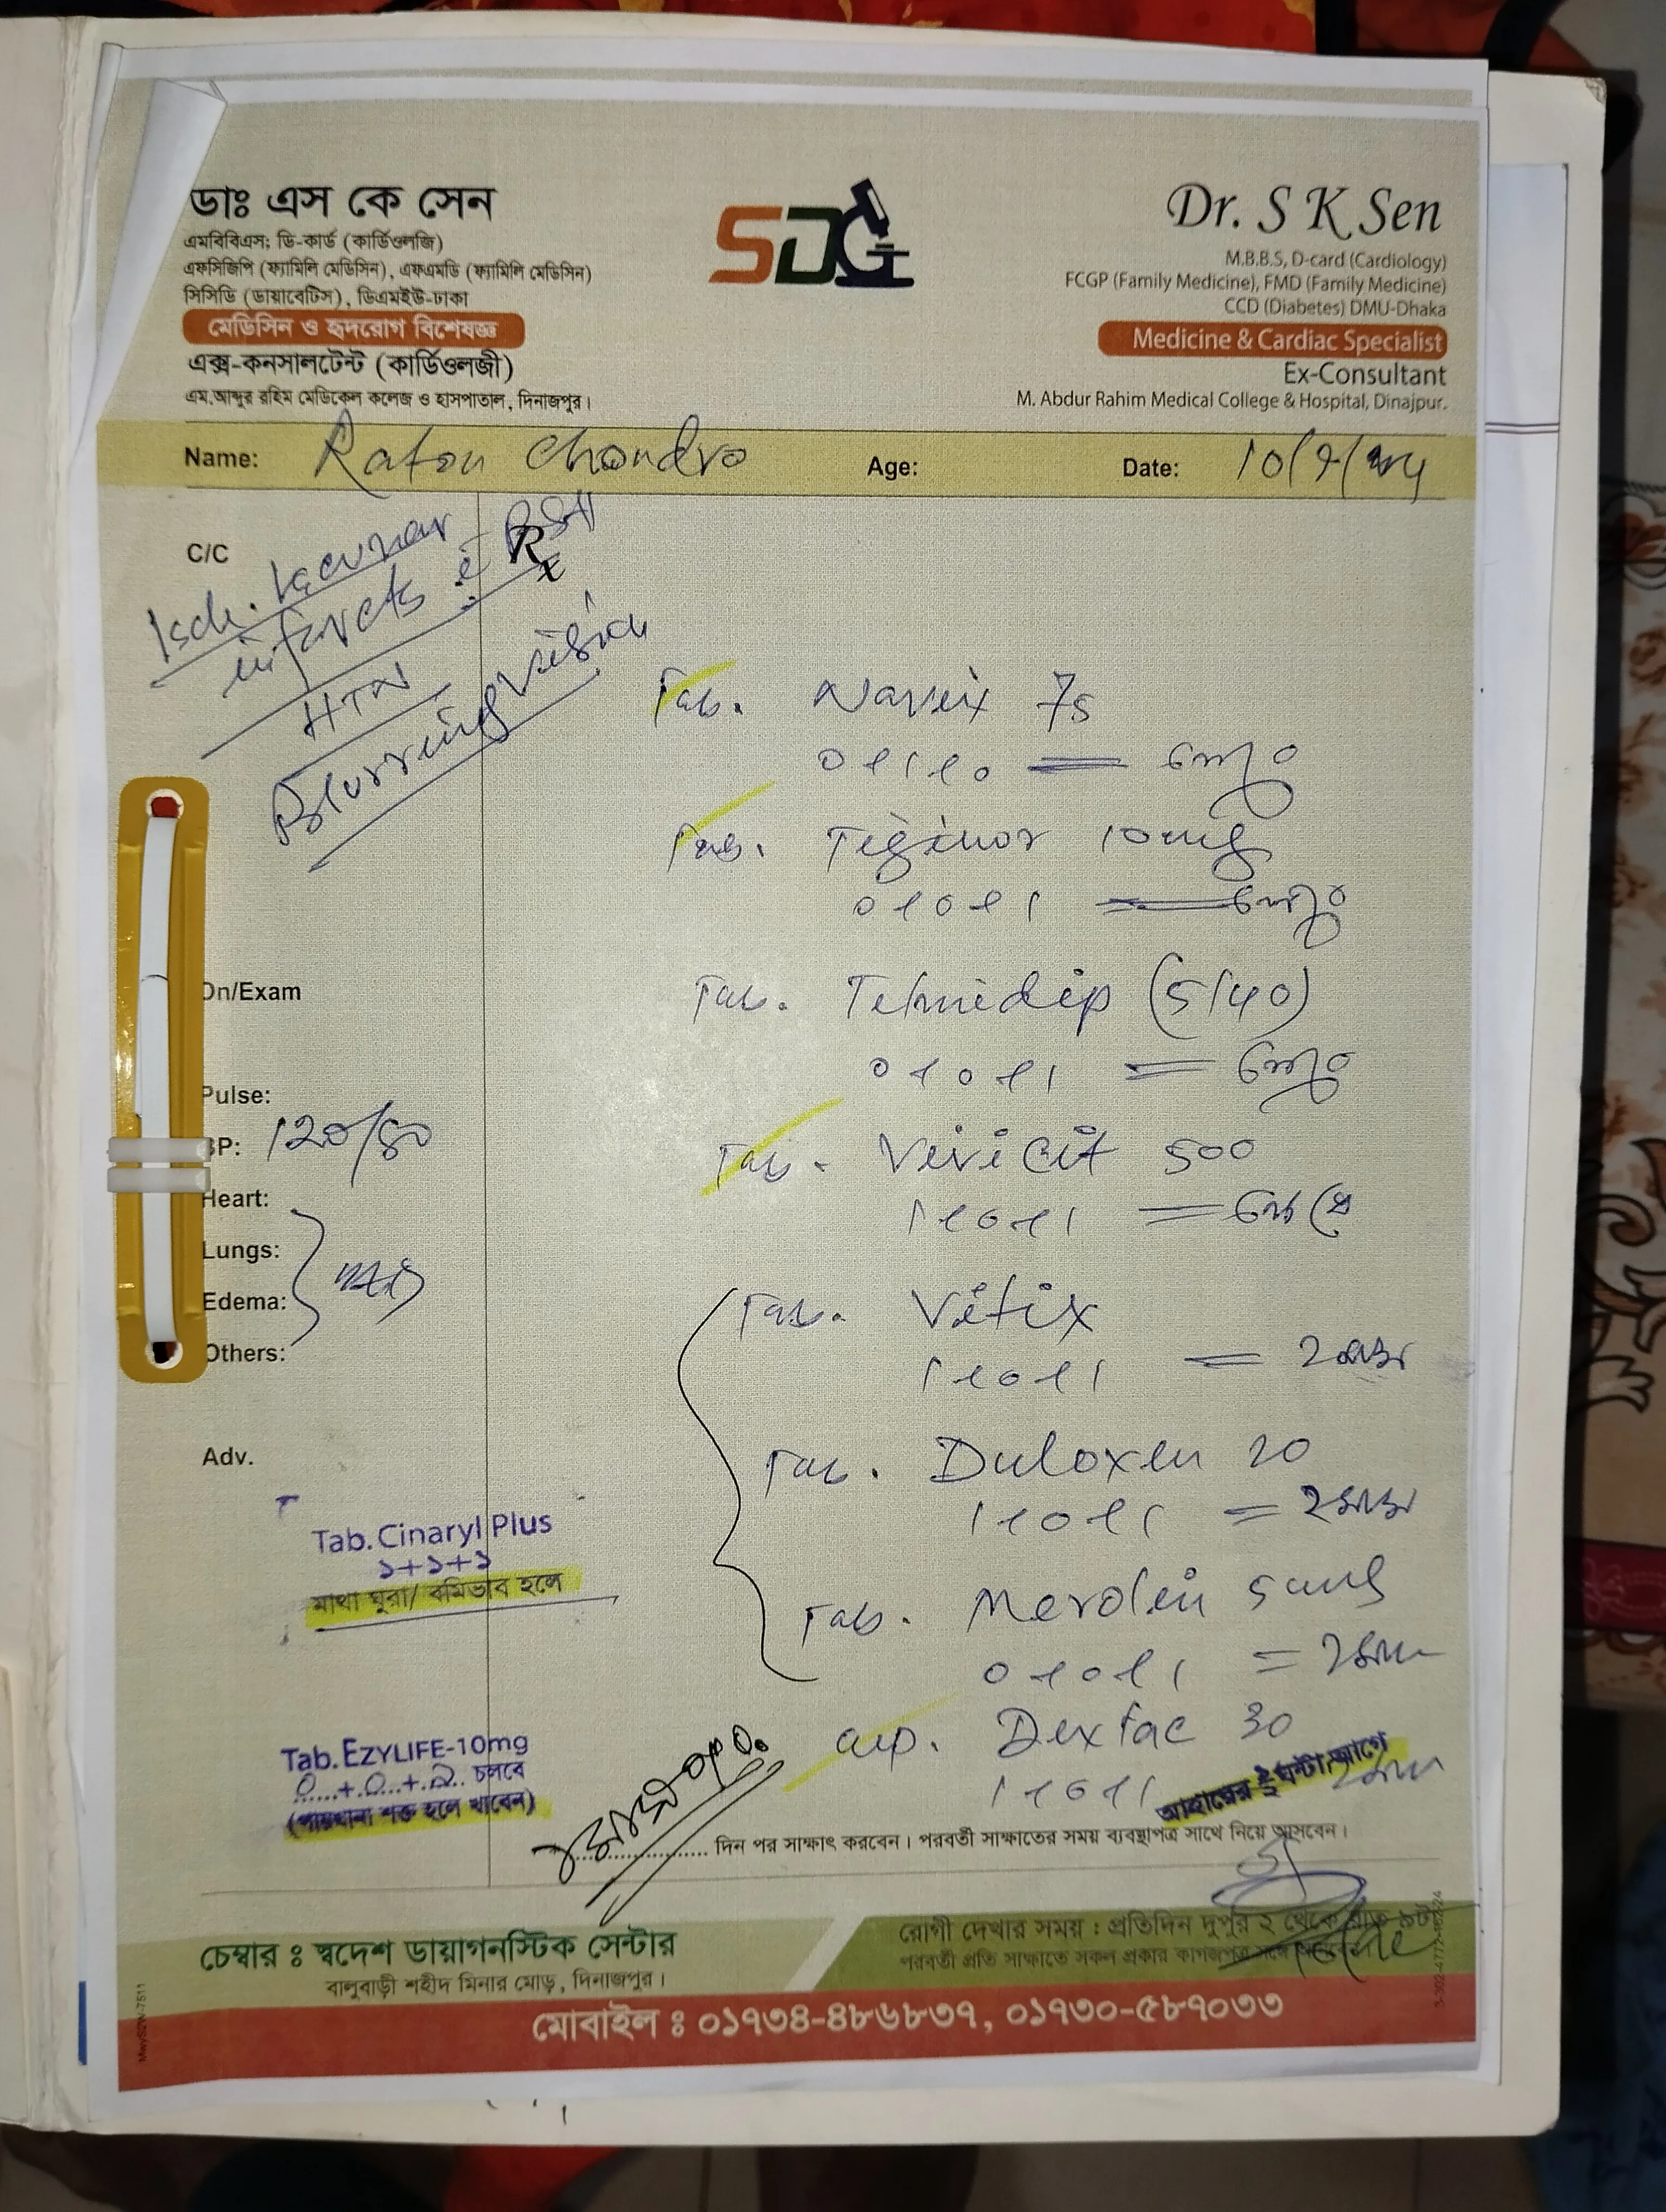 ডাঃ এস কে সেন
এমবিবিএস; ডি-কার্ড (কার্ডিওলজি)
এফসিজিপি (ফ্যামিলি মেডিসিন), এফএমডি (ফ্যামিলি মেডিসিন)
সিসিডি (ডায়াবেটিস), ডিএমইউ-ঢাকা
মেডিসিন ও হৃদরোগ বিশেষজ্ঞ
এক্স-কনসালটেন্ট (কার্ডিওলজী)
এম.আব্দুর রহিম মেডিকেল কলেজ ও হাসপাতাল, দিনাজপুর।
SDC
Dr. S K Sen
M.B.B.S, D-card (Cardiology)
FCGP (Family Medicine), FMD (Family Medicine)
CCD (Diabetes) DMU-Dhaka
Medicine & Cardiac Specialist
Ex-Consultant
M. Abdur Rahim Medical College & Hospital, Dinajpur.
Name: Raton Chondro Age: Date:
C/C
Isch. lacunar
infarcts
HTN
Blurring vision
Rx
Tab. Navix 75
0+1+0
Tab. Teginor 10mg
0+0+1
Tab. Telmidip (5/40)
0+0+1
On/Exam
Pulse:
BP: 120/80
Heart:
Lungs:
Edema:
Others:
Tab. Vivicit 500
1+0+1
Tab. Vitix
1+0+1 = ২মাস
Tab. Duloxen 20
1+0+1 = ২মাস
Tab. Merolin 5mg
0+0+1 = ২মাস
Cap. Dextac 30
1+0+1
আহারের ½ ঘন্টা আগে
Adv.
Tab. Cinaryl Plus
১+১+১
মাথা ঘুরা/ বমিভাব হলে
Tab. EZYLIFE-10mg
0...+.0...+.২.. চলবে
(পায়খানা শক্ত হলে খাবেন)
দিন পর সাক্ষাৎ করবেন। পরবর্তী সাক্ষাতের সময় ব্যবস্থাপত্র সাথে নিয়ে আসবেন।
চেম্বার ঃ স্বদেশ ডায়াগনস্টিক সেন্টার
বালুবাড়ী শহীদ মিনার মোড়, দিনাজপুর।
রোগী দেখার সময় : প্রতিদিন দুপুর ২ থেকে রাত ৯টা
পরবর্তী প্রতি সাক্ষাতে সকল প্রকার কাগজপত্র সঙ্গে
মোবাইল ঃ ০১৭৩৪-৪৮৬৮৩৭, ০১৭৩০-৫৮৭০৩৩